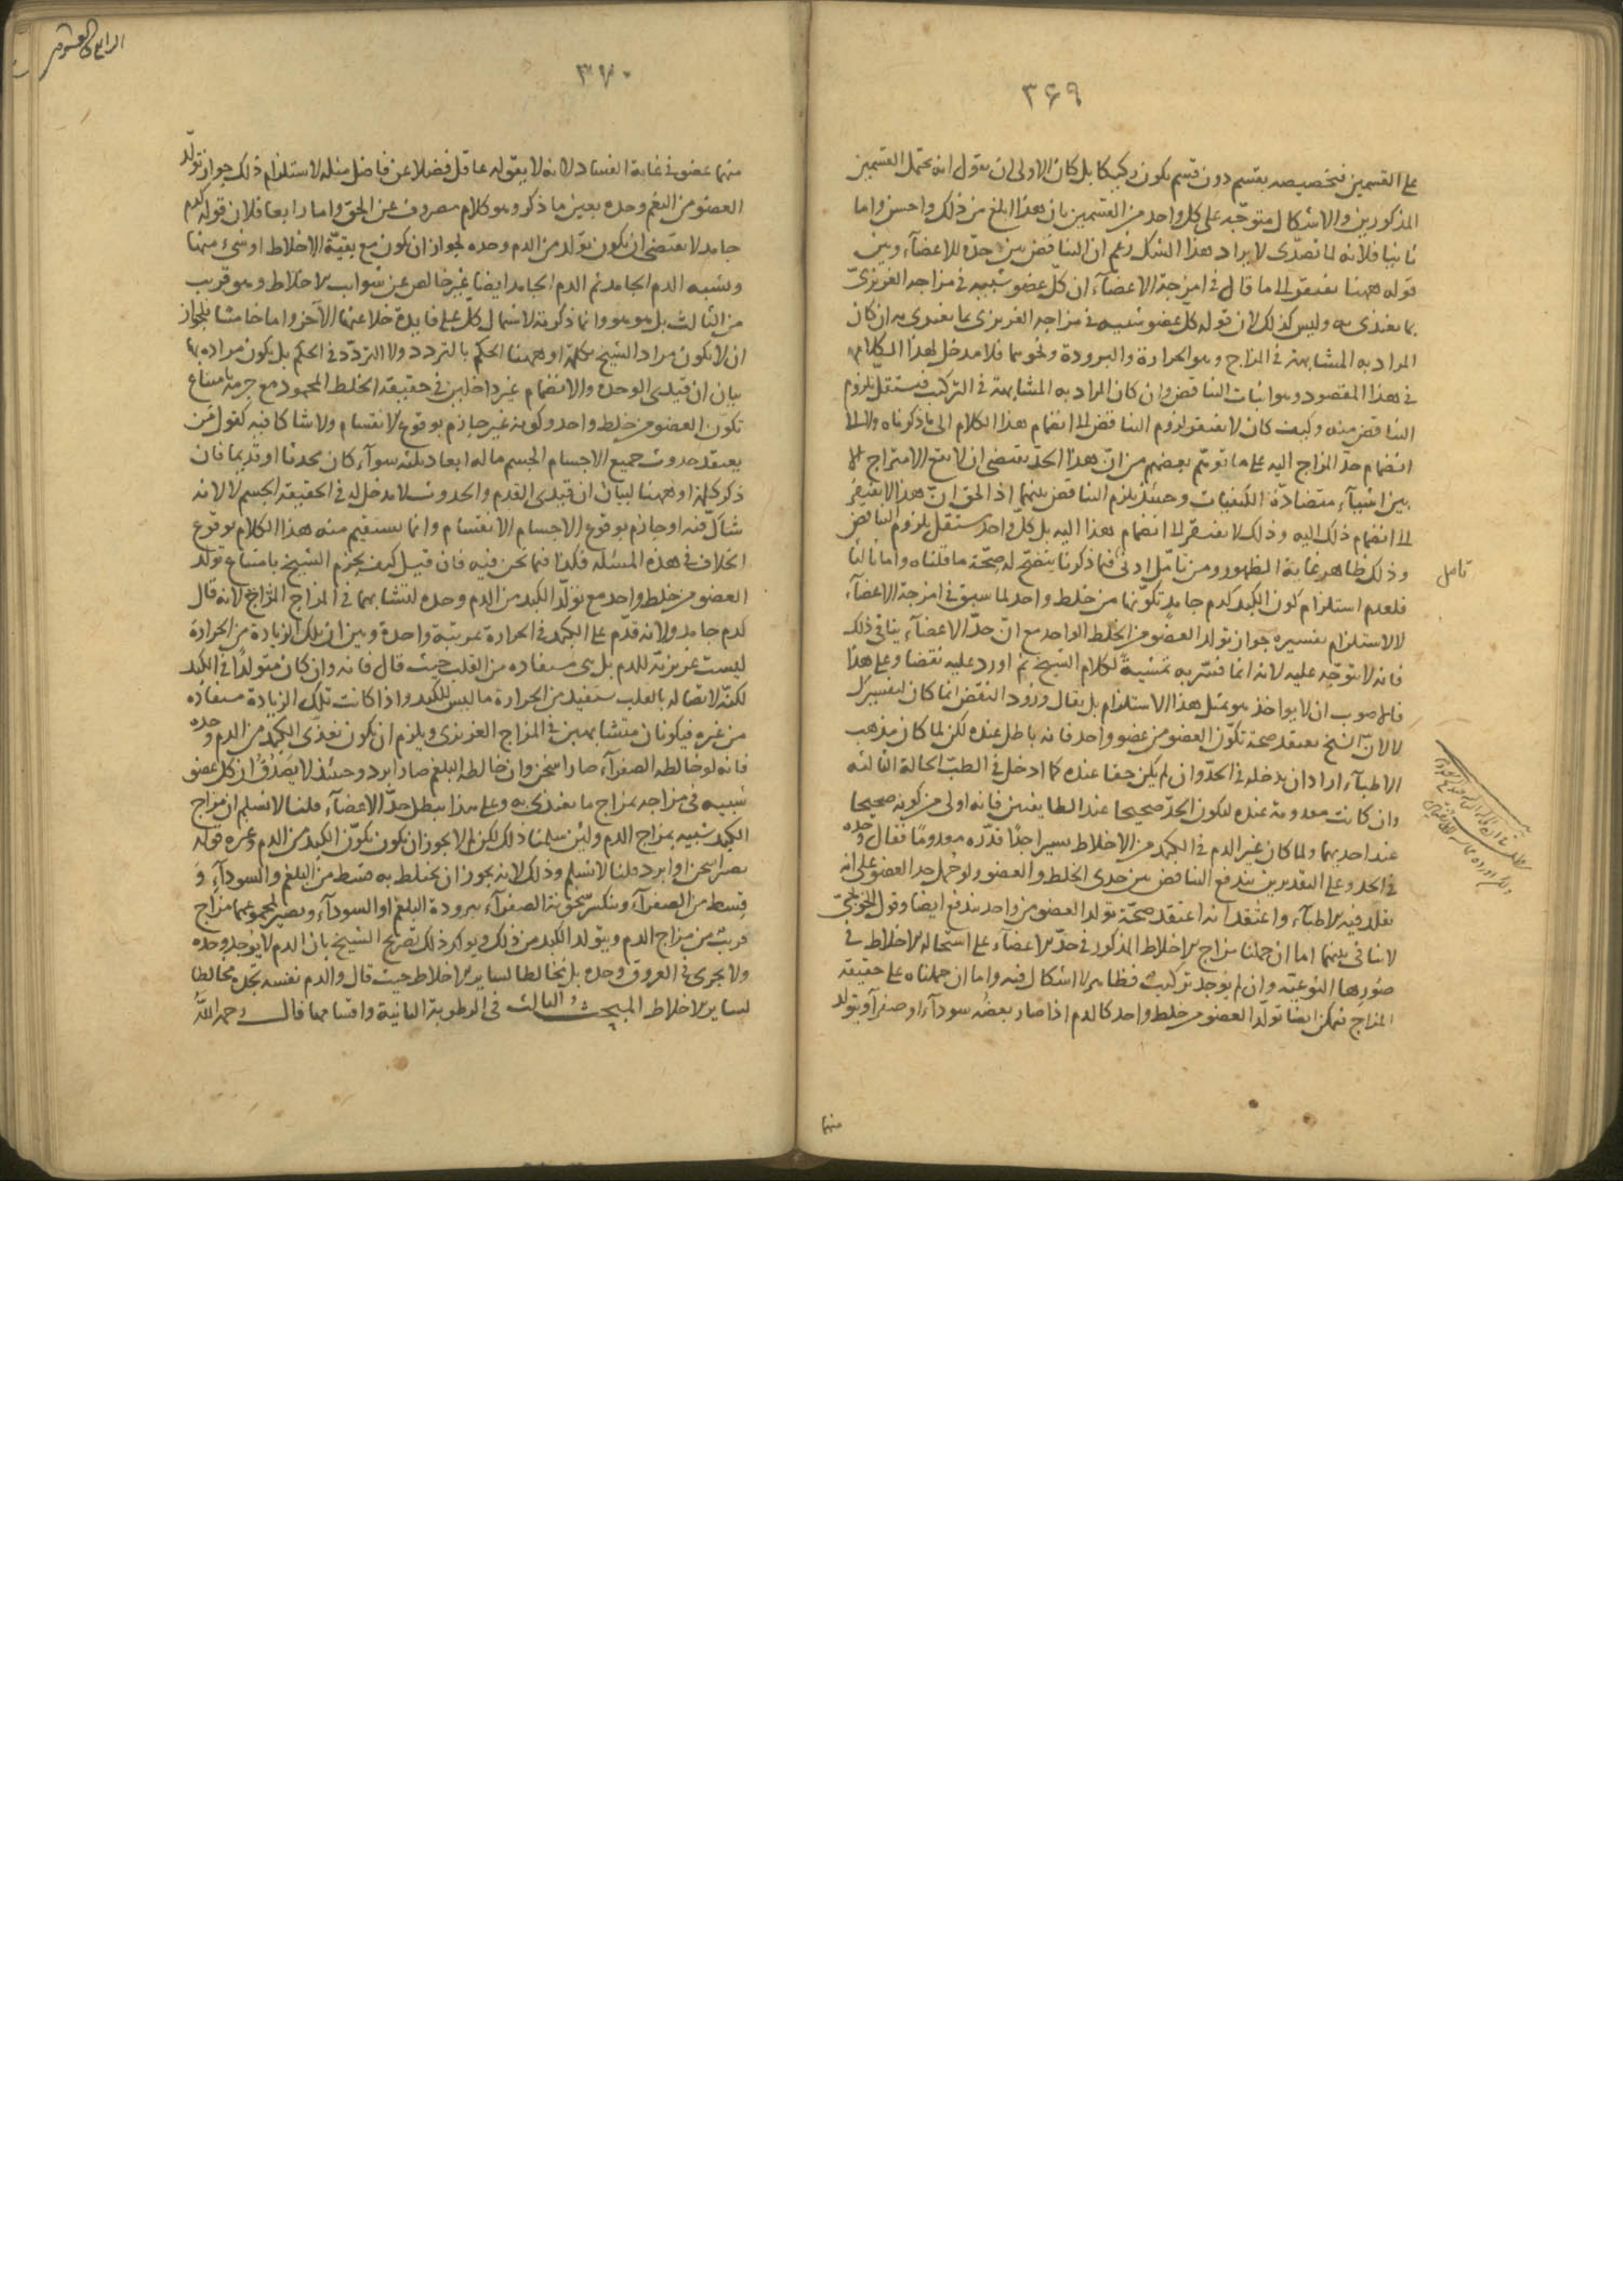 ۳۶۹
على القسمين فتخصيصه بقسم دون قسم يكون ركيكا بل كان الاولى ان يقول انه يحتمل القسمين
المذكورين والاشكال متوجّه على كل واحد من القسمين بان هذا ابلغ من ذلك واحسن واما
ثانيا فلانه لما تصدّى لايراد هذا الشك زعم ان التناقض بين حدّه للاعضآء وبين
قوله ههنا يفتقر الى ما قال فى امزجة الاعضآء ان كلّ عضو شبيه فى مزاجه الغريزىّ
بما يغتذى به وليس كذلك لان قوله كلّ عضو شبيه فى مزاجه الغريزى بما يغتذى به ان كان
المراد به المشابهة فى المزاج وهو الحرارة والبرودة ونحوهما فلا مدخل لهذا الكلام
فى هذا المقصود وهو اثبات التناقض وان كان المراد به المشابهة فى التركيب فيستقلّ بلزوم
التناقض منه وكيف كان لا يفتقر لزوم التناقض الى انضمام هذا الكلام الى ما ذكرناه ولا الى
انضمام حدّ المزاج اليه على ما توهّم بعضهم من انّ هذا الحدّ يقتضى ان لا يقع الامتزاج الا
بين اشيآء متضادّة الكيفيات وحينئذ يلزم التناقض بينهما اذ الحق انّ هذا لا يفتقر
الى انضمام ذلك اليه وذلك لا يفتقر الى انضمام هذا اليه بل كلّ واحد يستقل بلزوم التناقض
وذلك ظاهر غاية الظهور ومن تامّل ادنى فيما ذكرنا يتضح له صحّة ما قلناه واما ثالثا
تامل
فلعدم استلزام كون الكبد كدم جامد تكوّنها من خلط واحد لما سبق فى امزجة الاعضآء
لا لاستلزام تفسيره جواز تولد العضو من الخلط الواحد مع انّ حدّ الاعضآء ينافى ذلك
فانه لا يتوجّه عليه لانه انما فسّر به تمشيةً لكلام الشيخ ثم اورد عليه نقضا وعلى هذا
فالاصوب ان لا يواخذ هو بمثل هذا الاستلزام بل يقال ورود النقض انما كان لتفسيرك
لا لان الشيخ يعتقد صحة تكوّن العضو من عضو واحد فانه باطل عنده لكن لما كان مذهب
الاطبآء اراد ان يدخله فى الحدّ وان لم يكن حقا عنده كما ادخل فى الطبّ الحالة الثالثة
وان كانت معدومة عنده ليكون الحدّ صحيحا عند الطايفتين فانه اولى من كونه صحيحا
عند احديهما ولما كان غير الدم فى الكبد من الاخلاط يسيرا جدّا قدّره معدومًا فقال وحده
فى الحد وعلى التقديرين يندفع التناقض بين حدى الخلط والعضو ولو حُمل حد العضو على انه
يقلد فيه الاطبآء واعتقد انه اعتقد صحّة تولد العضو من واحد يندفع ايضا وقول الخونجىّ
لا تنافى بينهما اما ان حملنا مزاج الاخلاط المذكور فى حدّ الاعضآء على استحالة الاخلاط فى
صُورها النوعيّة وان لم يُوجد تركيبٌ فظاهر لا اشكال فيه واما ان حملناه على حقيقة
المزاج فيمكن ايضا تولّد العضو من خلط واحد كالدم اذا صار بعضُه سودآء او صفرآء ويتولد
منها
۳۷۰
منها عضو فى غاية الفساد لانه لا يقوله عاقل فضلا عن فاضل مثله لاستلزام ذلك جواز تولّد
العضو من البلغم وحده بعين ما ذكر وهو كلام مصروف عن الحق واما رابعا فلان قوله كدم
جامد لا يقتضى ان يكون تولّد من الدم وحده لجواز ان يكون مع بقيّة الاخلاط او شىء منها
ويشبه الدم الجامد ثم الدم الجامد ايضا غير خالص عن شوايب الاخلاط وهو قريب
من الثالث بل هو هو وانما ذكرته لاشتمال كلّ على فايدة خلا عنها الآخر واما خامسا فلجواز
ان لا يكون مراد الشيخ بكلمة او ههنا الحكم بالتردد ولا التردّد فى الحكم بل يكون مراده بها
بيان ان قيدى الوحدة والانضمام غير داخلين فى حقيقة الخلط المحمود مع جزمه بامتناع
تكوّن العضو من خلط واحد وكونه غير جازم بوقوع الانقسام ولا شاكا فيه كقول من
يعتقد حدوث جميع الاجسام الجسم ما له ابعاد ثلثه سوآء كان محدثا او قديما فان
ذكر كلمة او ههنا لبيان ان قيدى القدم والحدوث لا مدخل له فى الحقيقة الجسم لا لانه
شاكّ فيه او جازم بوقوع الاجسام الانقسام وانما يستقيم منه هذا الكلام بوقوع
الخلاف فى هذه المسئلة فكذا فيما نحن فيه فان قيل كيف يجزم الشيخ بامتناع تولد
العضو من خلط واحد مع تولّد الكبد من الدم وحده لتشابههما فى المزاج المزاج لانه قال
كدم جامد ولانه قدّم على الكبد فى الحرارة بمرتبة واحدة وبين ان تلك الزيادة من الحرارة
ليست غريزيّة للدم بل هى مستفاده من القلب حيث قال فانه وان كان متولّدًا فى الكبد
لكنّه لاتصاله بالقلب يستفيد من الحرارة ما ليس للكبد واذا كانت تلك الزيادة مستفاده
من غيره فيكونان متشابهين فى المزاج الغريزى ويلزم ان يكون تغذّى الكبد من الدم وحده
فانه لو خالطه الصفرآء صار اسخن وان خالطه البلغم صار ابرد وحينئذ لا يَصْدُقُ ان كل عضو
شبيه فى مزاجه بمزاج ما يغتذى به وعلى هذا يبطل حدّ الاعضآء قلنا لا نسلم ان مزاج
الكبد شبيه بمزاج الدم ولئن سلمنا ذلك لكن لم لا يجوز ان يكون تكوّن الكبد من الدم وغيره قوله
يصير اسخن او ابرد قلنا لا نسلم وذلك لانه يجوز ان يختلط به قسط من البلغم والسودآء و
قسط من الصفرآء وينكسر سخونة الصفرآء ببرودة البلغم او السودآء ويصير لمجموعها مزاج
قريبٌ من مزاج الدم ويتولد الكبد من ذلك ويوكد ذلك تصريح الشيخ بان الدم لا يُوجد وحده
ولا يجرى فى العروق وحده بل مخالطا لساير الاخلاط حيث قال والدم نفسه تجده مخالطا
لساير الاخلاط المبحث الثالث فى الرطوبة الثانية واقسامها قال رحمه اللهُ